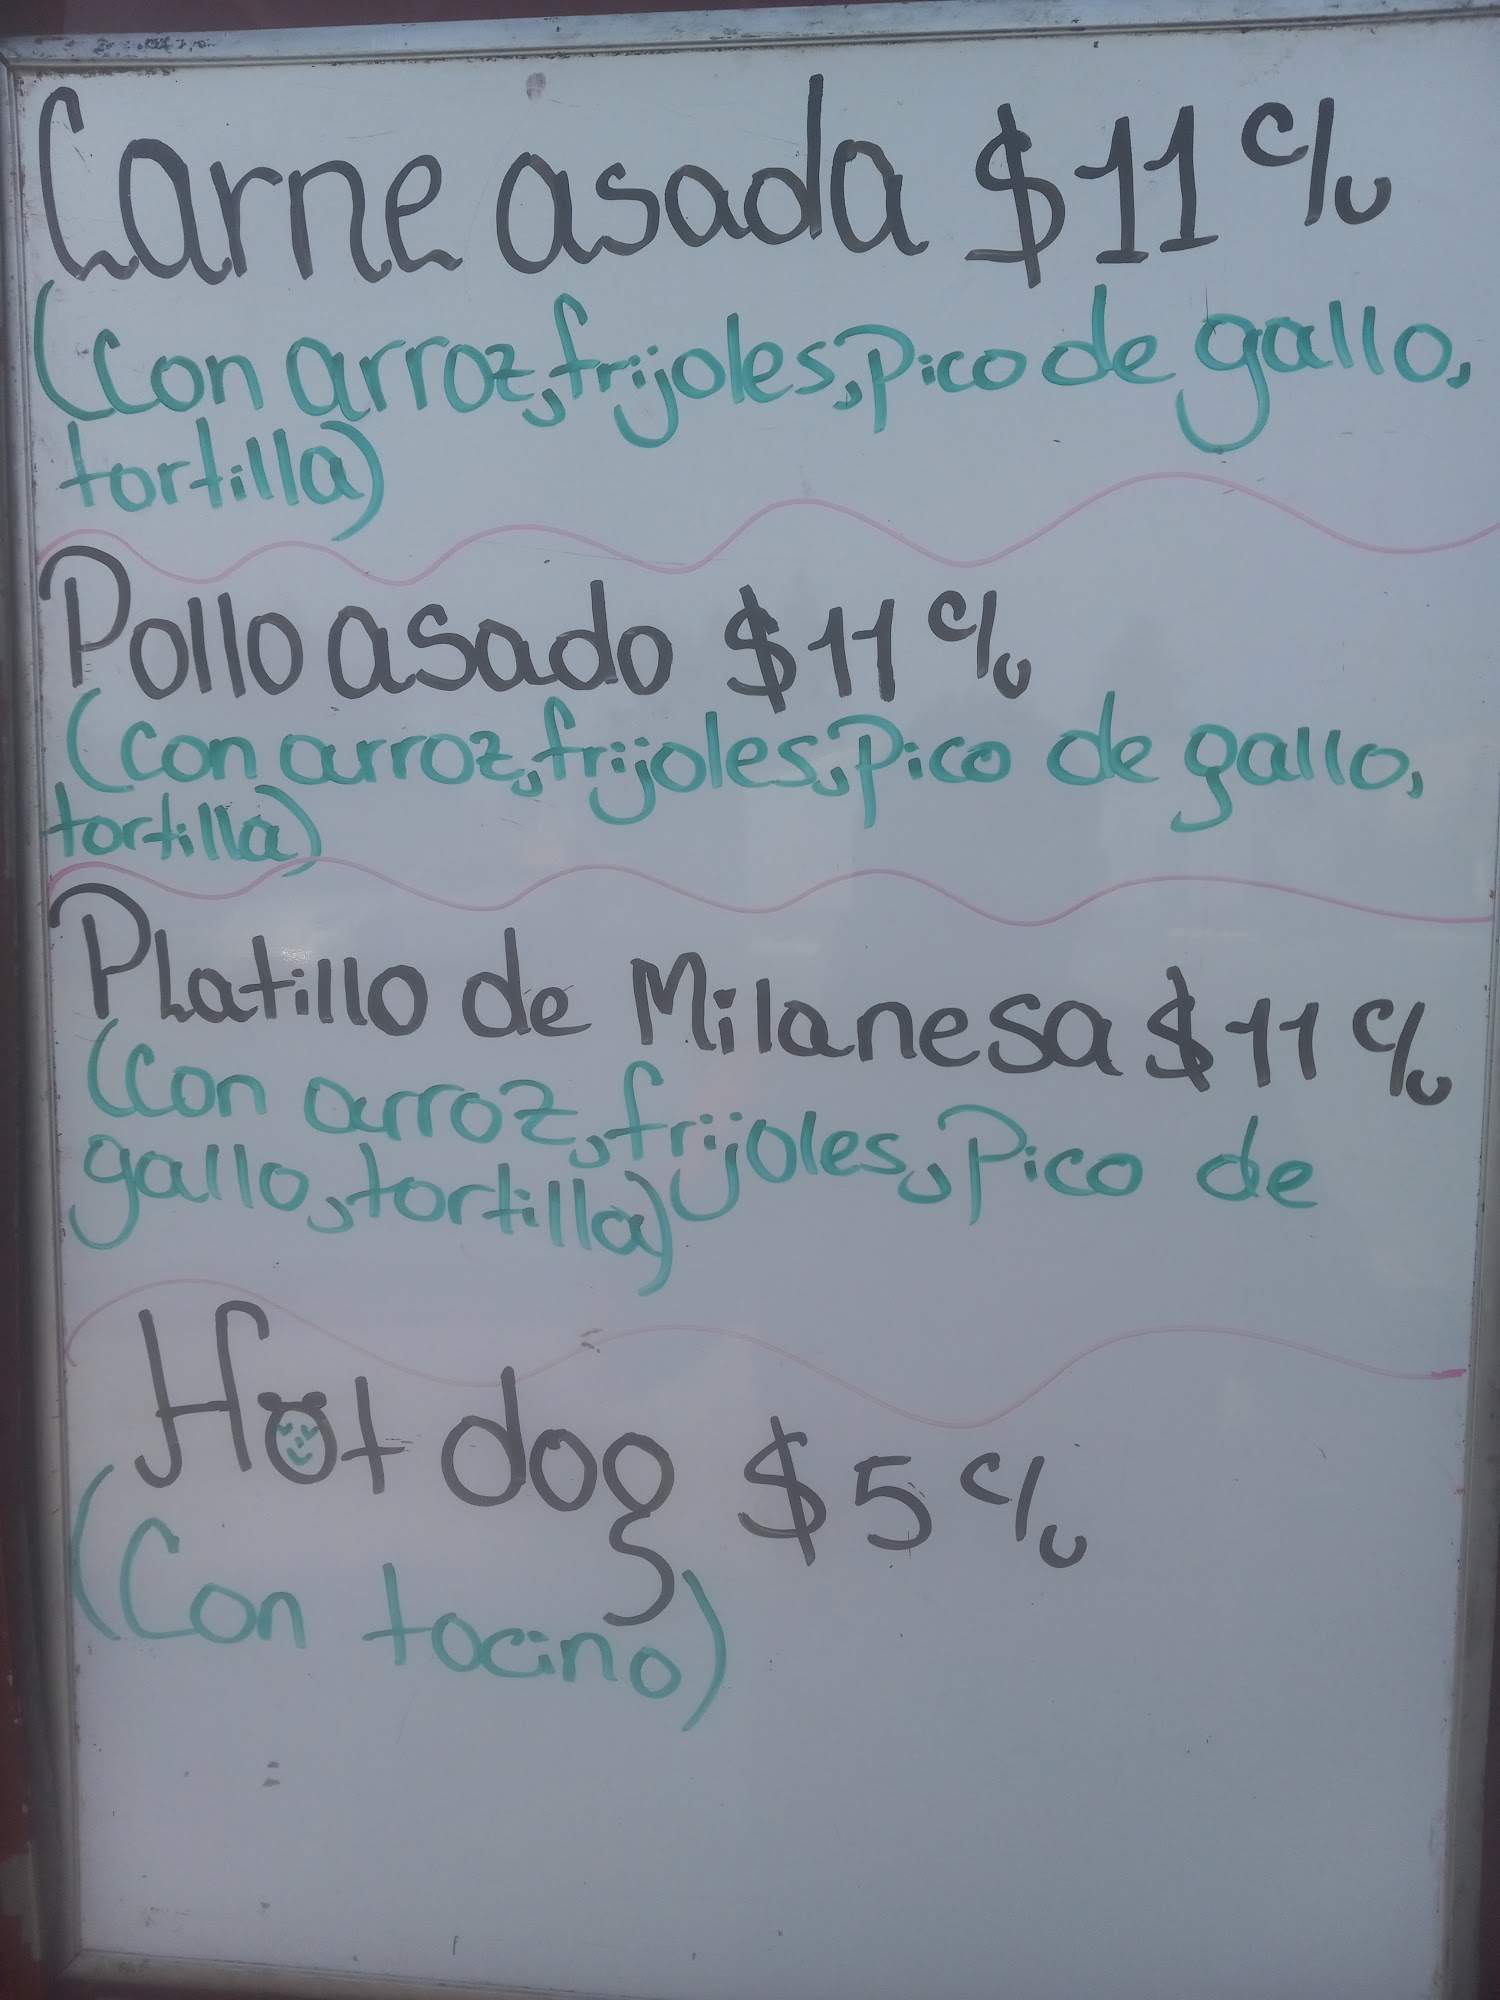 Carne asada $11 c/u
(Con arroz, frijoles, pico de gallo,
tortilla)
Pollo asado $11 c/u
(con arroz, frijoles, pico de gallo,
tortilla)
Platillo de Milanesa $11 c/u
(Con arroz, frijoles, pico de
gallo, tortilla)
Hot dog $5 c/u
(Con tocino)